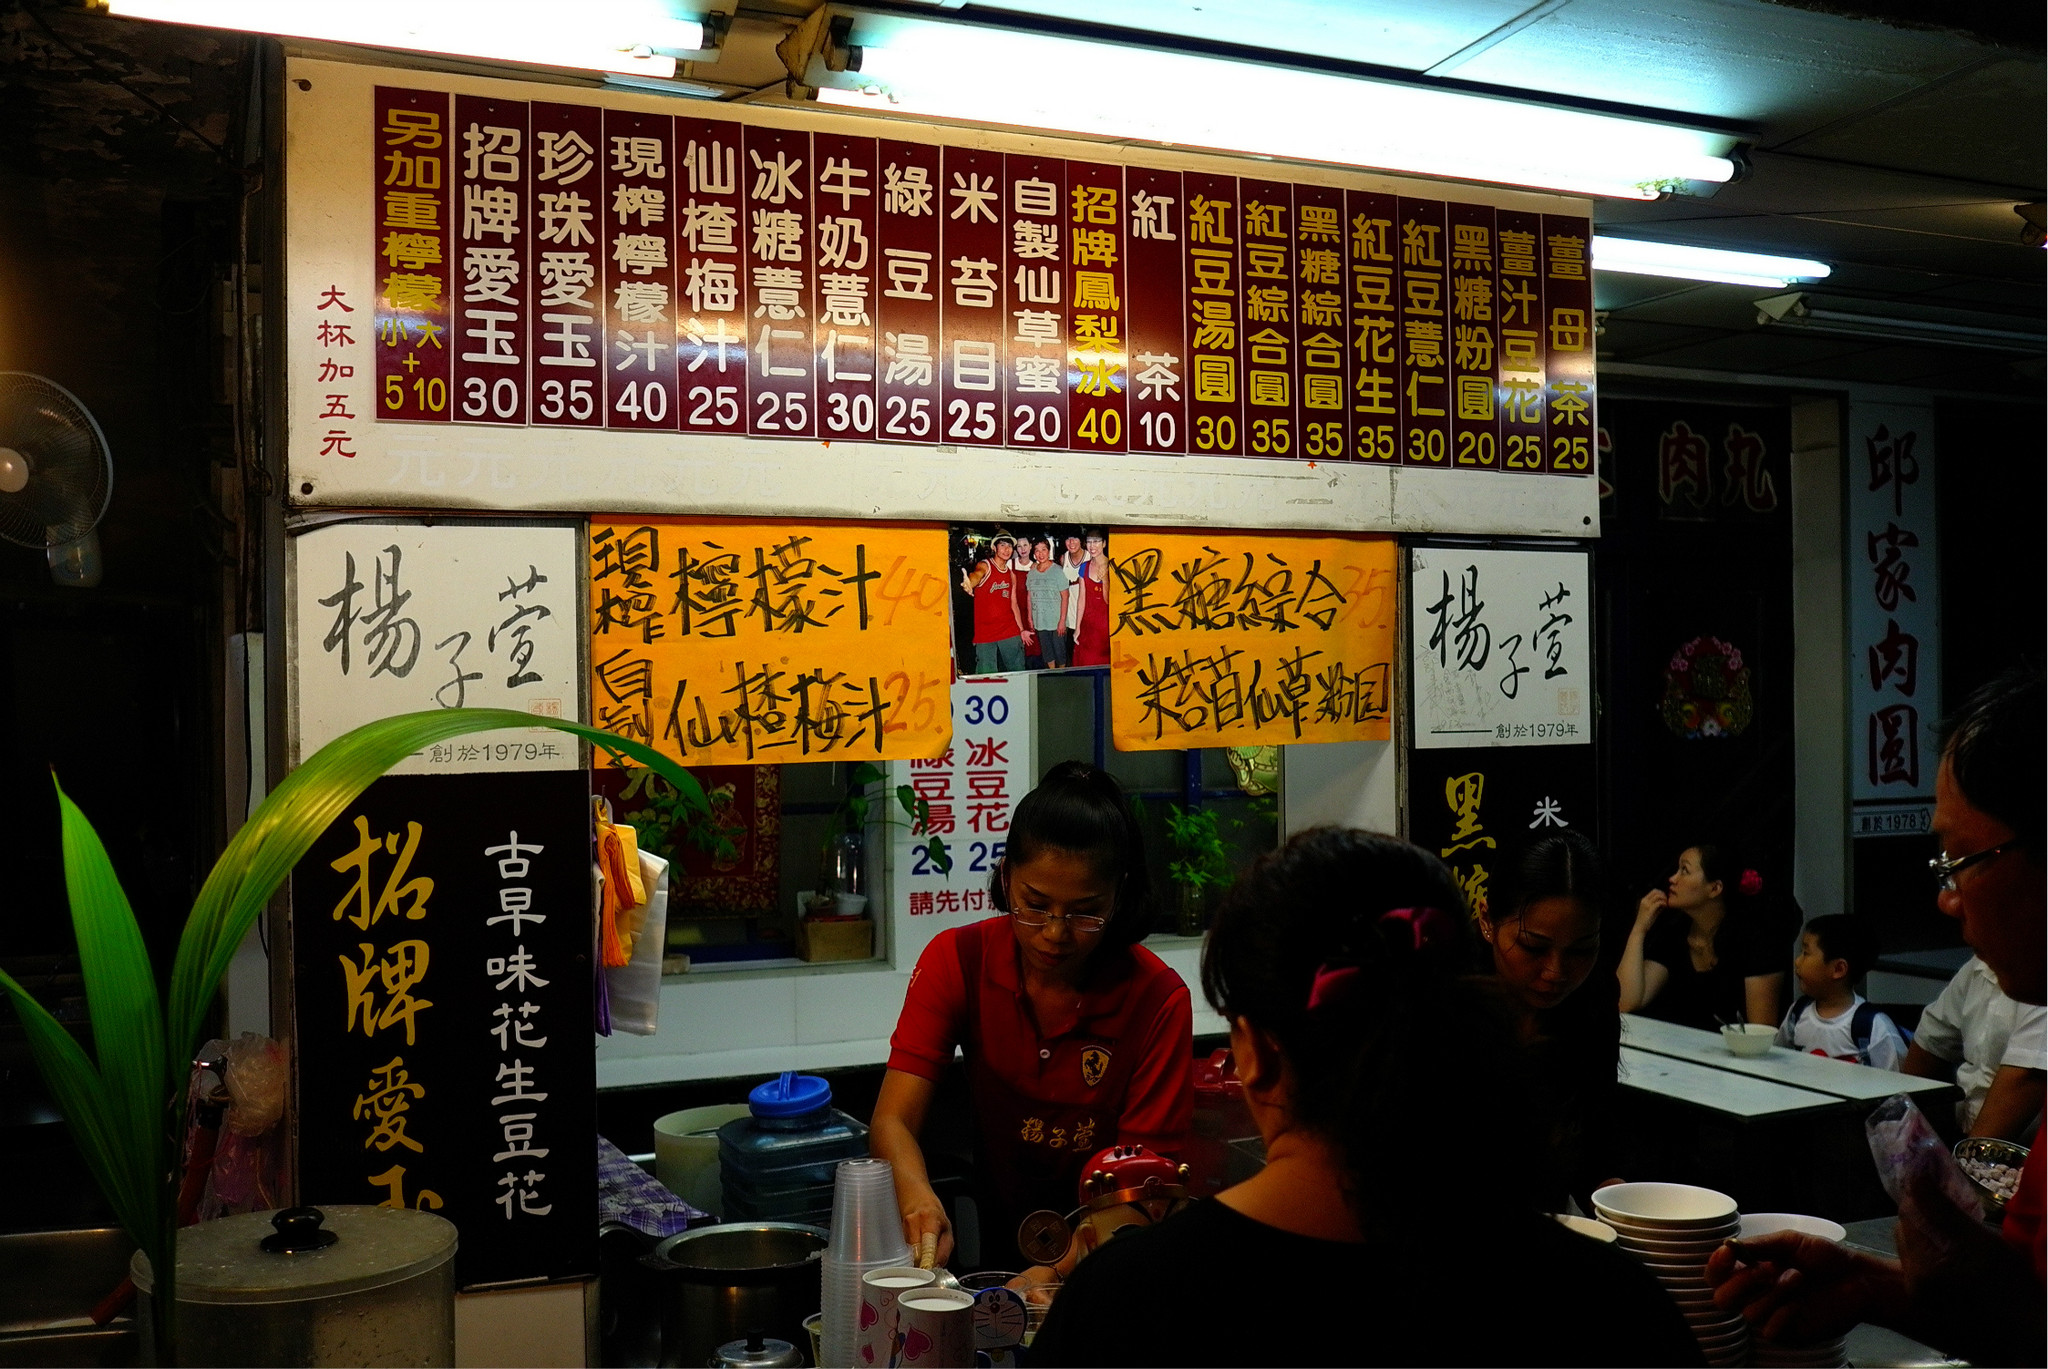 大杯加五元
另加重檸檬小+5大10
招牌愛玉30
珍珠愛玉35
現榨檸檬汁40
仙楂梅汁25
冰糖薏仁25
牛奶薏仁30
綠豆湯25
米苔目25
自製仙草蜜20
招牌鳳梨冰40
紅茶10
紅豆湯圓30
紅豆綜合圓35
黑糖綜合圓35
紅豆花生35
紅豆薏仁30
黑糖粉圓20
薑汁豆花25
薑母茶25
楊子萱
創於1979年
現榨檸檬汁40.
自製仙楂梅汁25.
黑糖綜合35.
米苔目仙草粉圓
楊子萱
創於1979年
招牌愛玉
古早味花生豆花
30
綠豆湯25
冰豆花25
請先付
黑糖
米
肉丸
邱家肉圓
創於1978
楊子萱